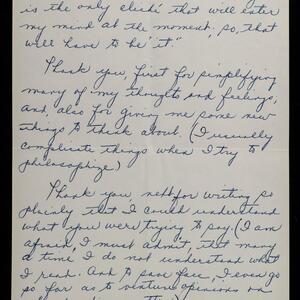 is the only cliché that will enter
my mind at the moment, so, that
will have to be it."
Thank you, first for simplifying
many of my thoughts and feelings,
and, also for giving me some new
things to think about. (I usually
complicate things when I try to
philosophize.)
Thank you, next for writing so
plainly that I could understand
what you were trying to say. (I am
afraid, I must admit, that many
a time I do not understand what
I read. And to save face, I even go
so far as to venture opinions on